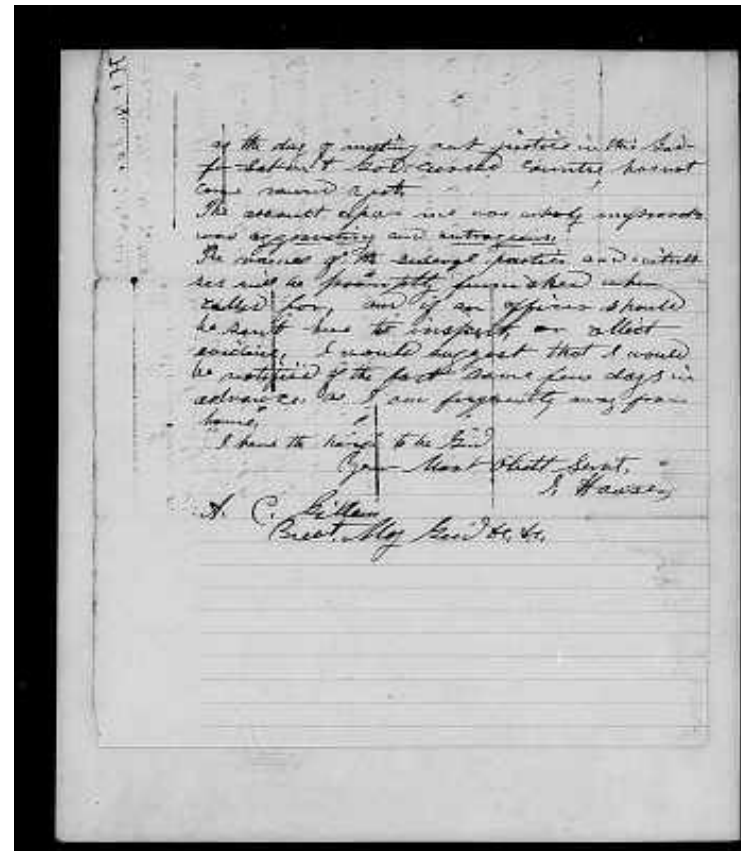 as the day of meeting out justice in this God-
forsaken & God-cursed country has not
come round yet.
The assault upon me was wholy unprovoked
was aggravating and outrageous.
The names of the several parties and witnes-
ses will be promptly furnished when
called for, and if an officer should
be sent here to inspect, or collect
evidence, I would suggest that I would
be notified of the fact some few days in
advance as I am frequently away from
home.
I have the honor to be Gen'l
Your Most Obdt Servt.
A. C. Gillem
Brevt. Maj Gen'l &c. &c.